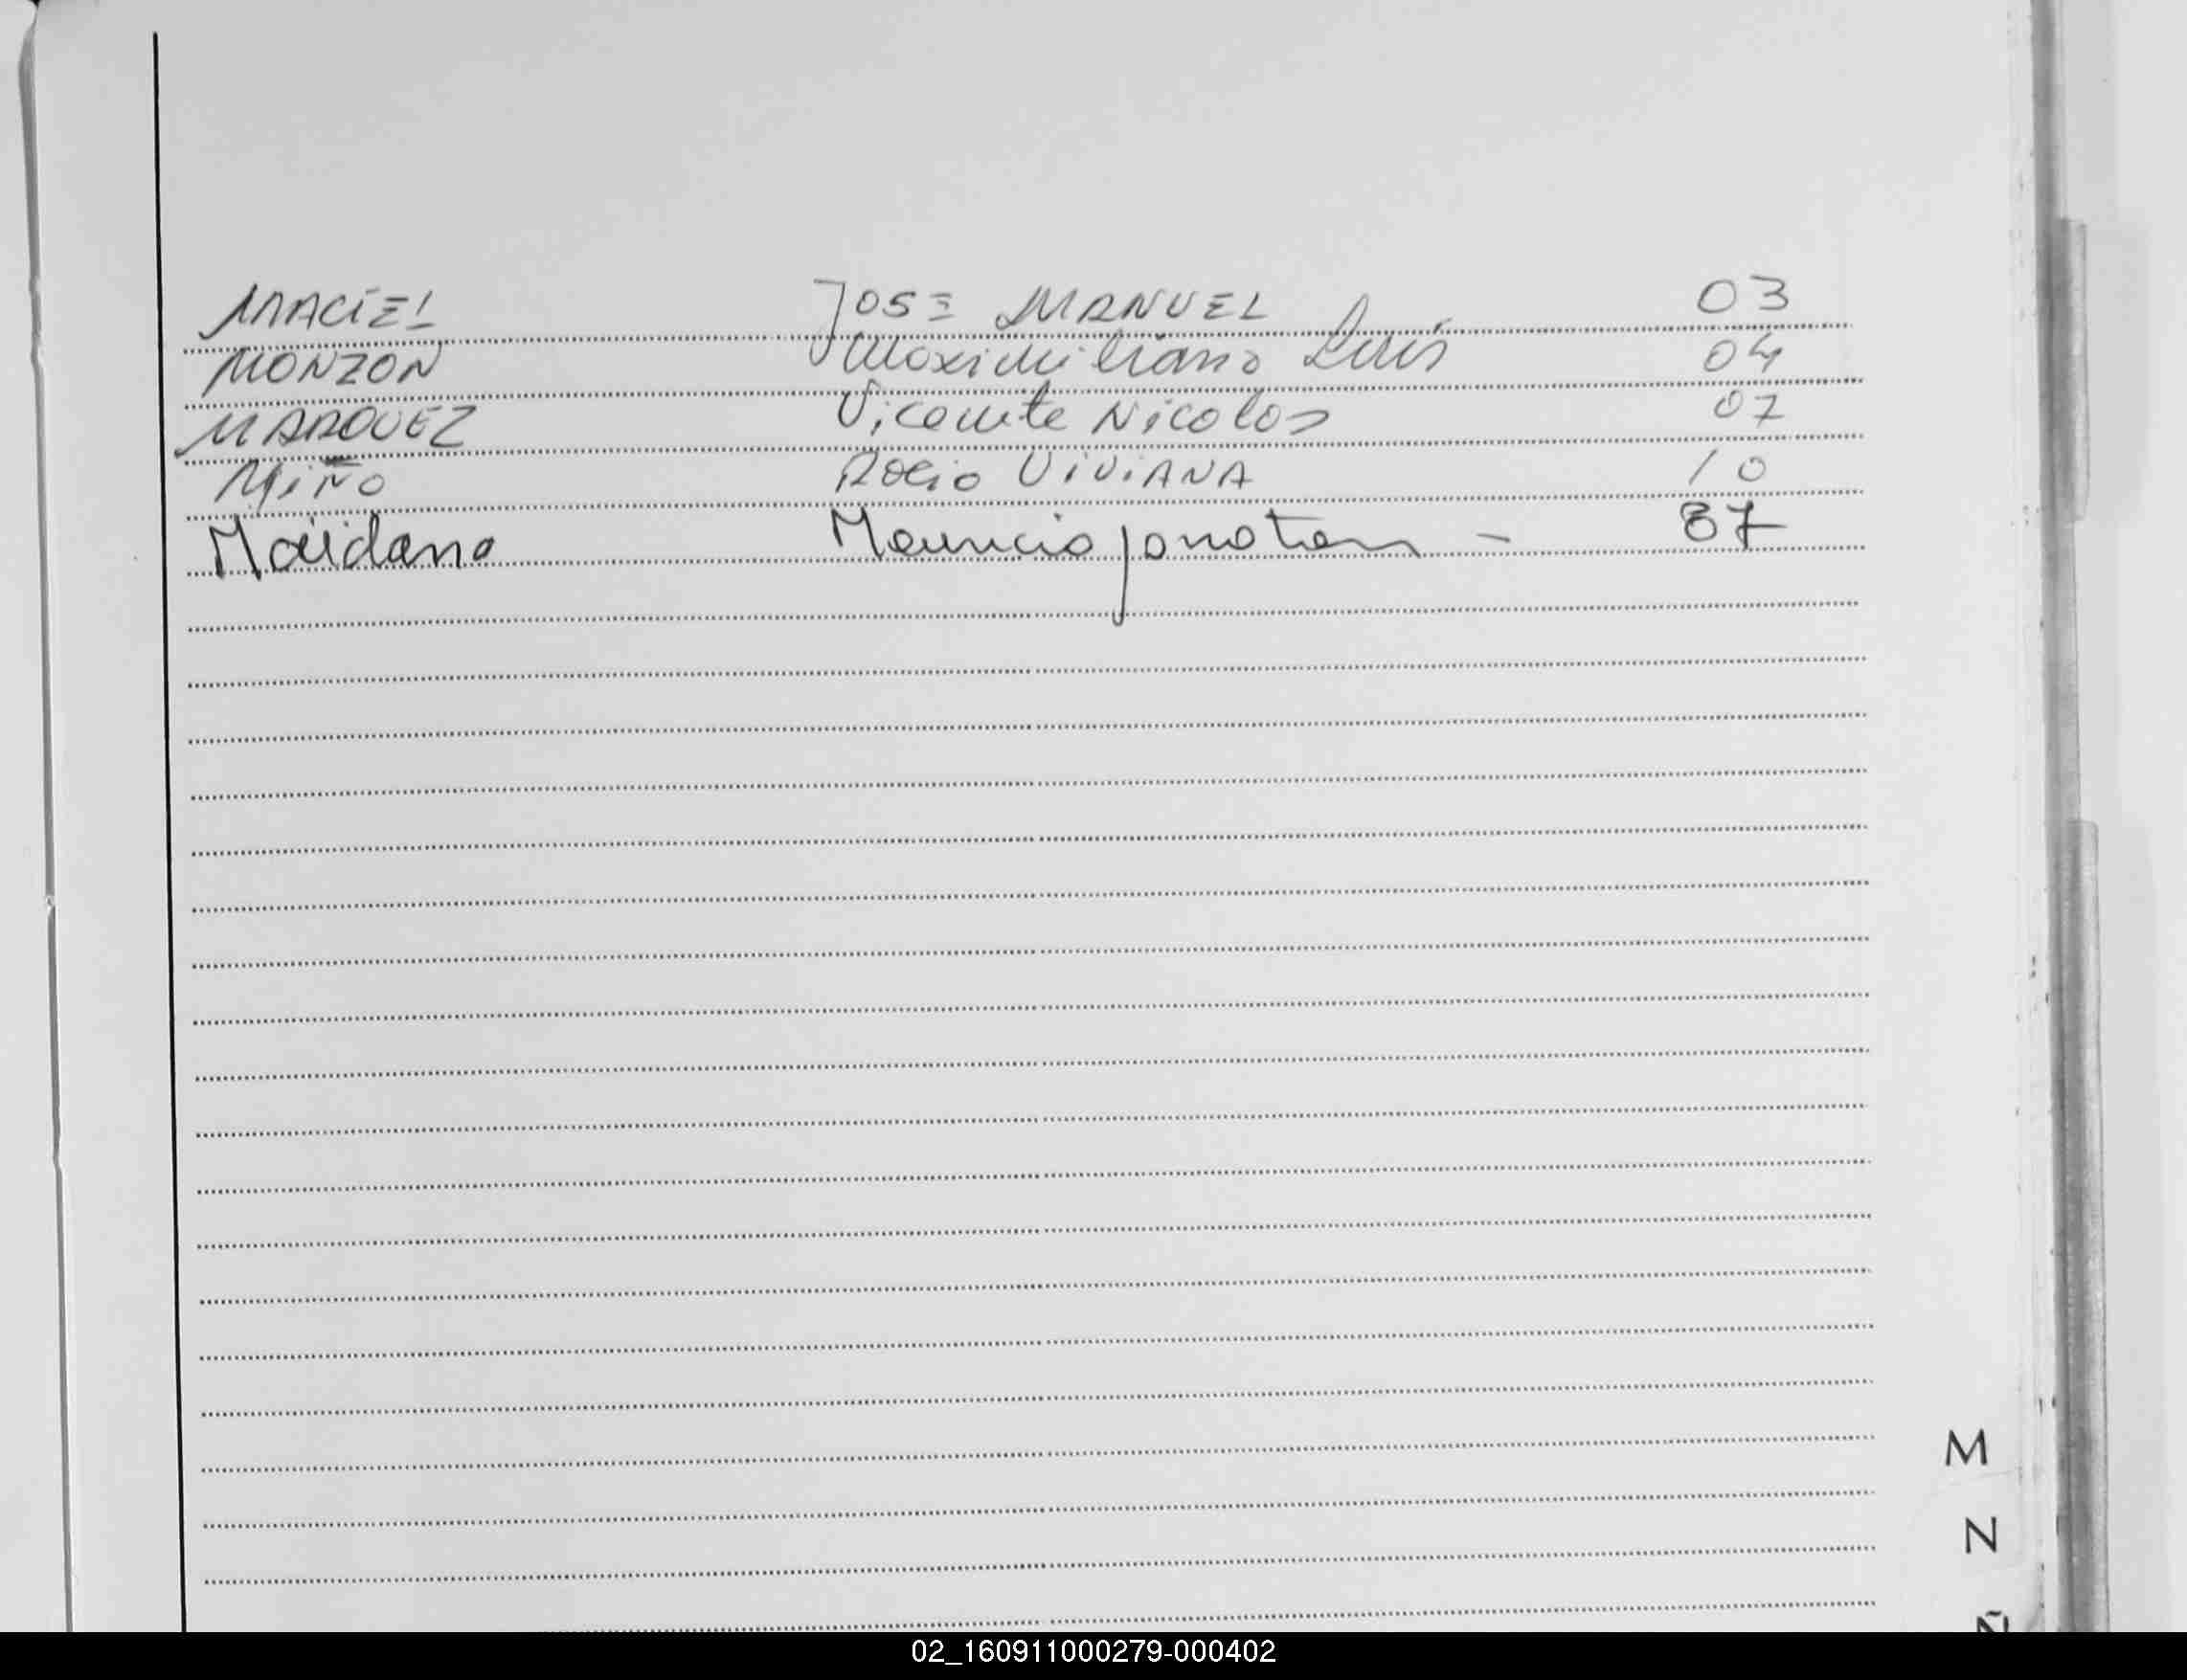 MACIEL JOSE MANUEL 03
MONZON Maximiliano Luis 04
MARQUEZ Vicente Nicolas 07
MIÑO Rocio ViViANA 10
Maidana Mauricio Jonatan - 37
M
N
Ñ
02_160911000279-000402